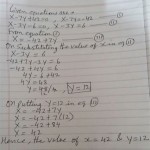 Given equations are =
x-7y+42=0 x-7y=-42 (I)
x-3y-6=0 x-3y=6 (II)
From equation (I)
x=-42+7y (III)
On Substituting the value of x in eq (II)
x-3y=6
-42+7y-3y=6
-42+4y=6
4y=6+42
4y=48
y=48/4 y=12
On putting y=12 in eq (III)
x=-42+7y
x=-42+7(12)
x=-42+84
x=42
Hence, the value of x=42 & y=12